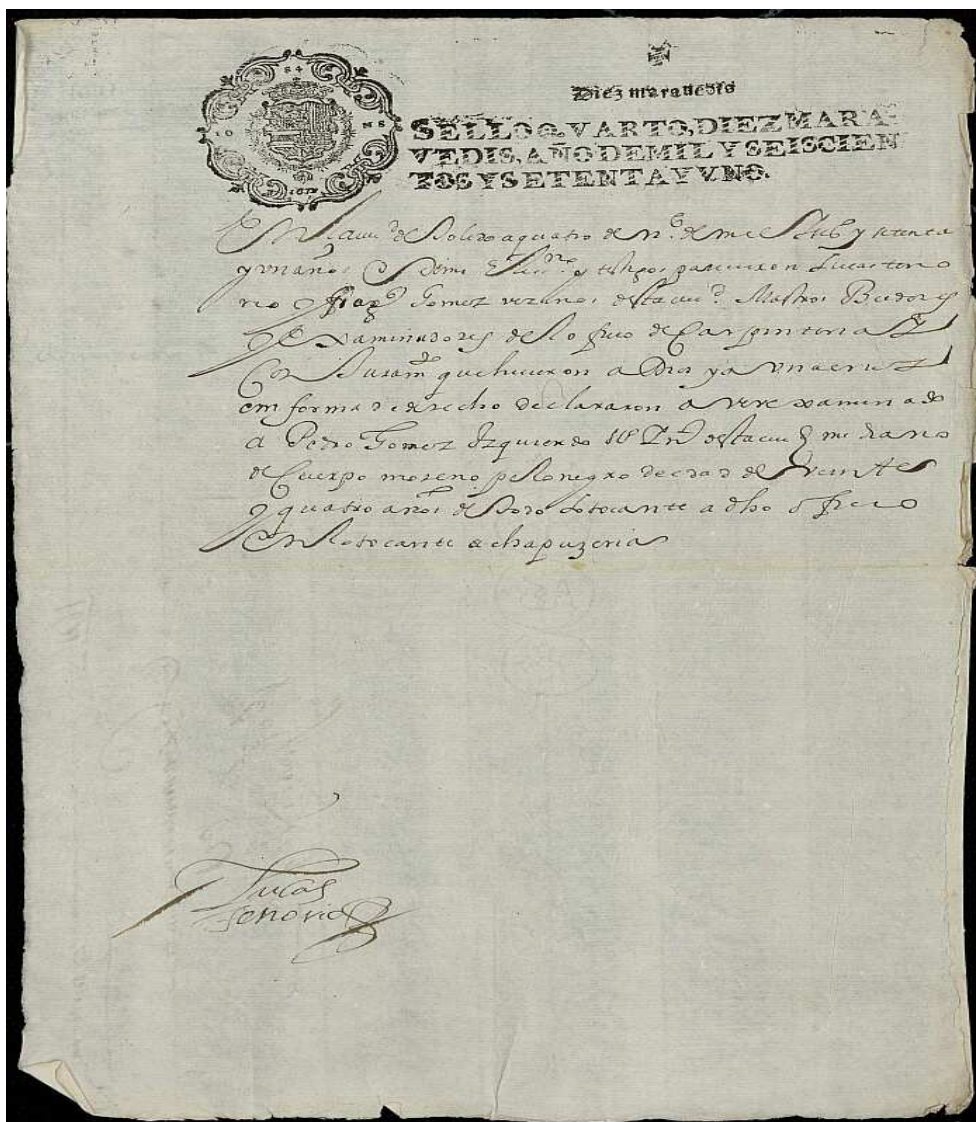 Diez marauedis
SELLO QVARTO, DIEZ MARA-
VEDIS, AÑO DE MIL Y SEISCIEN
TOS Y SETENTA Y VNO.
1671
En la ciud de Toledo a quatro de de mil y setenta
y un años y testigos parecieron Lucas teno
rio y Gomez vezinos desta ciud Maestros Beedores
y Examinadores del oficio de Carpinteria
Con Juramto que hicieron a Dios y a una cruz
en forma de derecho declararon aver examinado
a Pedro Gomez Izquierdo desta ciud mediano
de Cuerpo moreno pelo negro de edad de Veinte
y quatro años de todo lo tocante a dho oficio
En lo tocante a chapuzeria
Lucas
tenorio